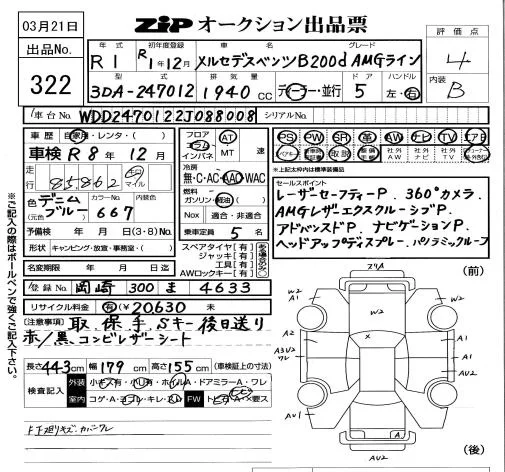 03月21日
ZIP オークション出品票
出品No.
322
評価点
4
内装
B
年式 初年度登録 車名 グレード
R1 R1年12月 メルセデスベンツB200d AMGライン
型式 排気量 ドア ハンドル
3DA-247012 1940cc ディーラー・並行 5 左・右
車台No. WDD2470122J088008 シリアルNo.
車歴 自家用・レンタ・( )
車検 R8年12月
走行 85862 キロ マイル
色 デニムブルー (元色) カラーNo. 667 内装色
予備検 年 月 日 (3・8) No.
形状 キャンピング・放宣・事務室・( )
名変期限 年 月 日迄
フロア コラム インパネ AT MT 速
冷房 無・C・AC AAC WAC
燃料 ガソリン・軽油( )
Nox 適合・非適合
乗車定員 5名
スペアタイヤ[有]
ジャッキ[有]
工具[有]
AWロックキー[有]
PS PW SR 革 AW ナビ TV エアB
取説 社外AW 社外ナビ 社外TV
*上記太枠内は標準装備品
セールスポイント
レーザーセーフティーP. 360°カメラ.
AMGレザーエクスクルーシブP.
アドバンスドP. ナビゲーションP.
ヘッドアップディスプレー. パノラミックルーフ
登録No. 岡崎 300 ま 4633
リサイクル料金 有 (¥20,630 未
[注意事項] 取.保.手.Sキー後日送り
赤/黒.コンビレザーシート
長さ443cm 幅179cm 高さ155cm (車検証上の寸法)
検査記入
外装 小キズ有・小凹有・ホイルA・ドアミラーA・ワレ
室内 コゲ・A・ヨゴレ・キレ・ヌレ FW トビ石・A・×要ス
F下廻りキズ.カバーワレ
※ご記入の際はボールペンで強くご記入下さい。
(前)
フリA
W2
A1
W2
W2
A1
A2
×
A1
A3U2
ワレ
A1
AU2
W2
W2
AU1
A1
A
AU2
(後)